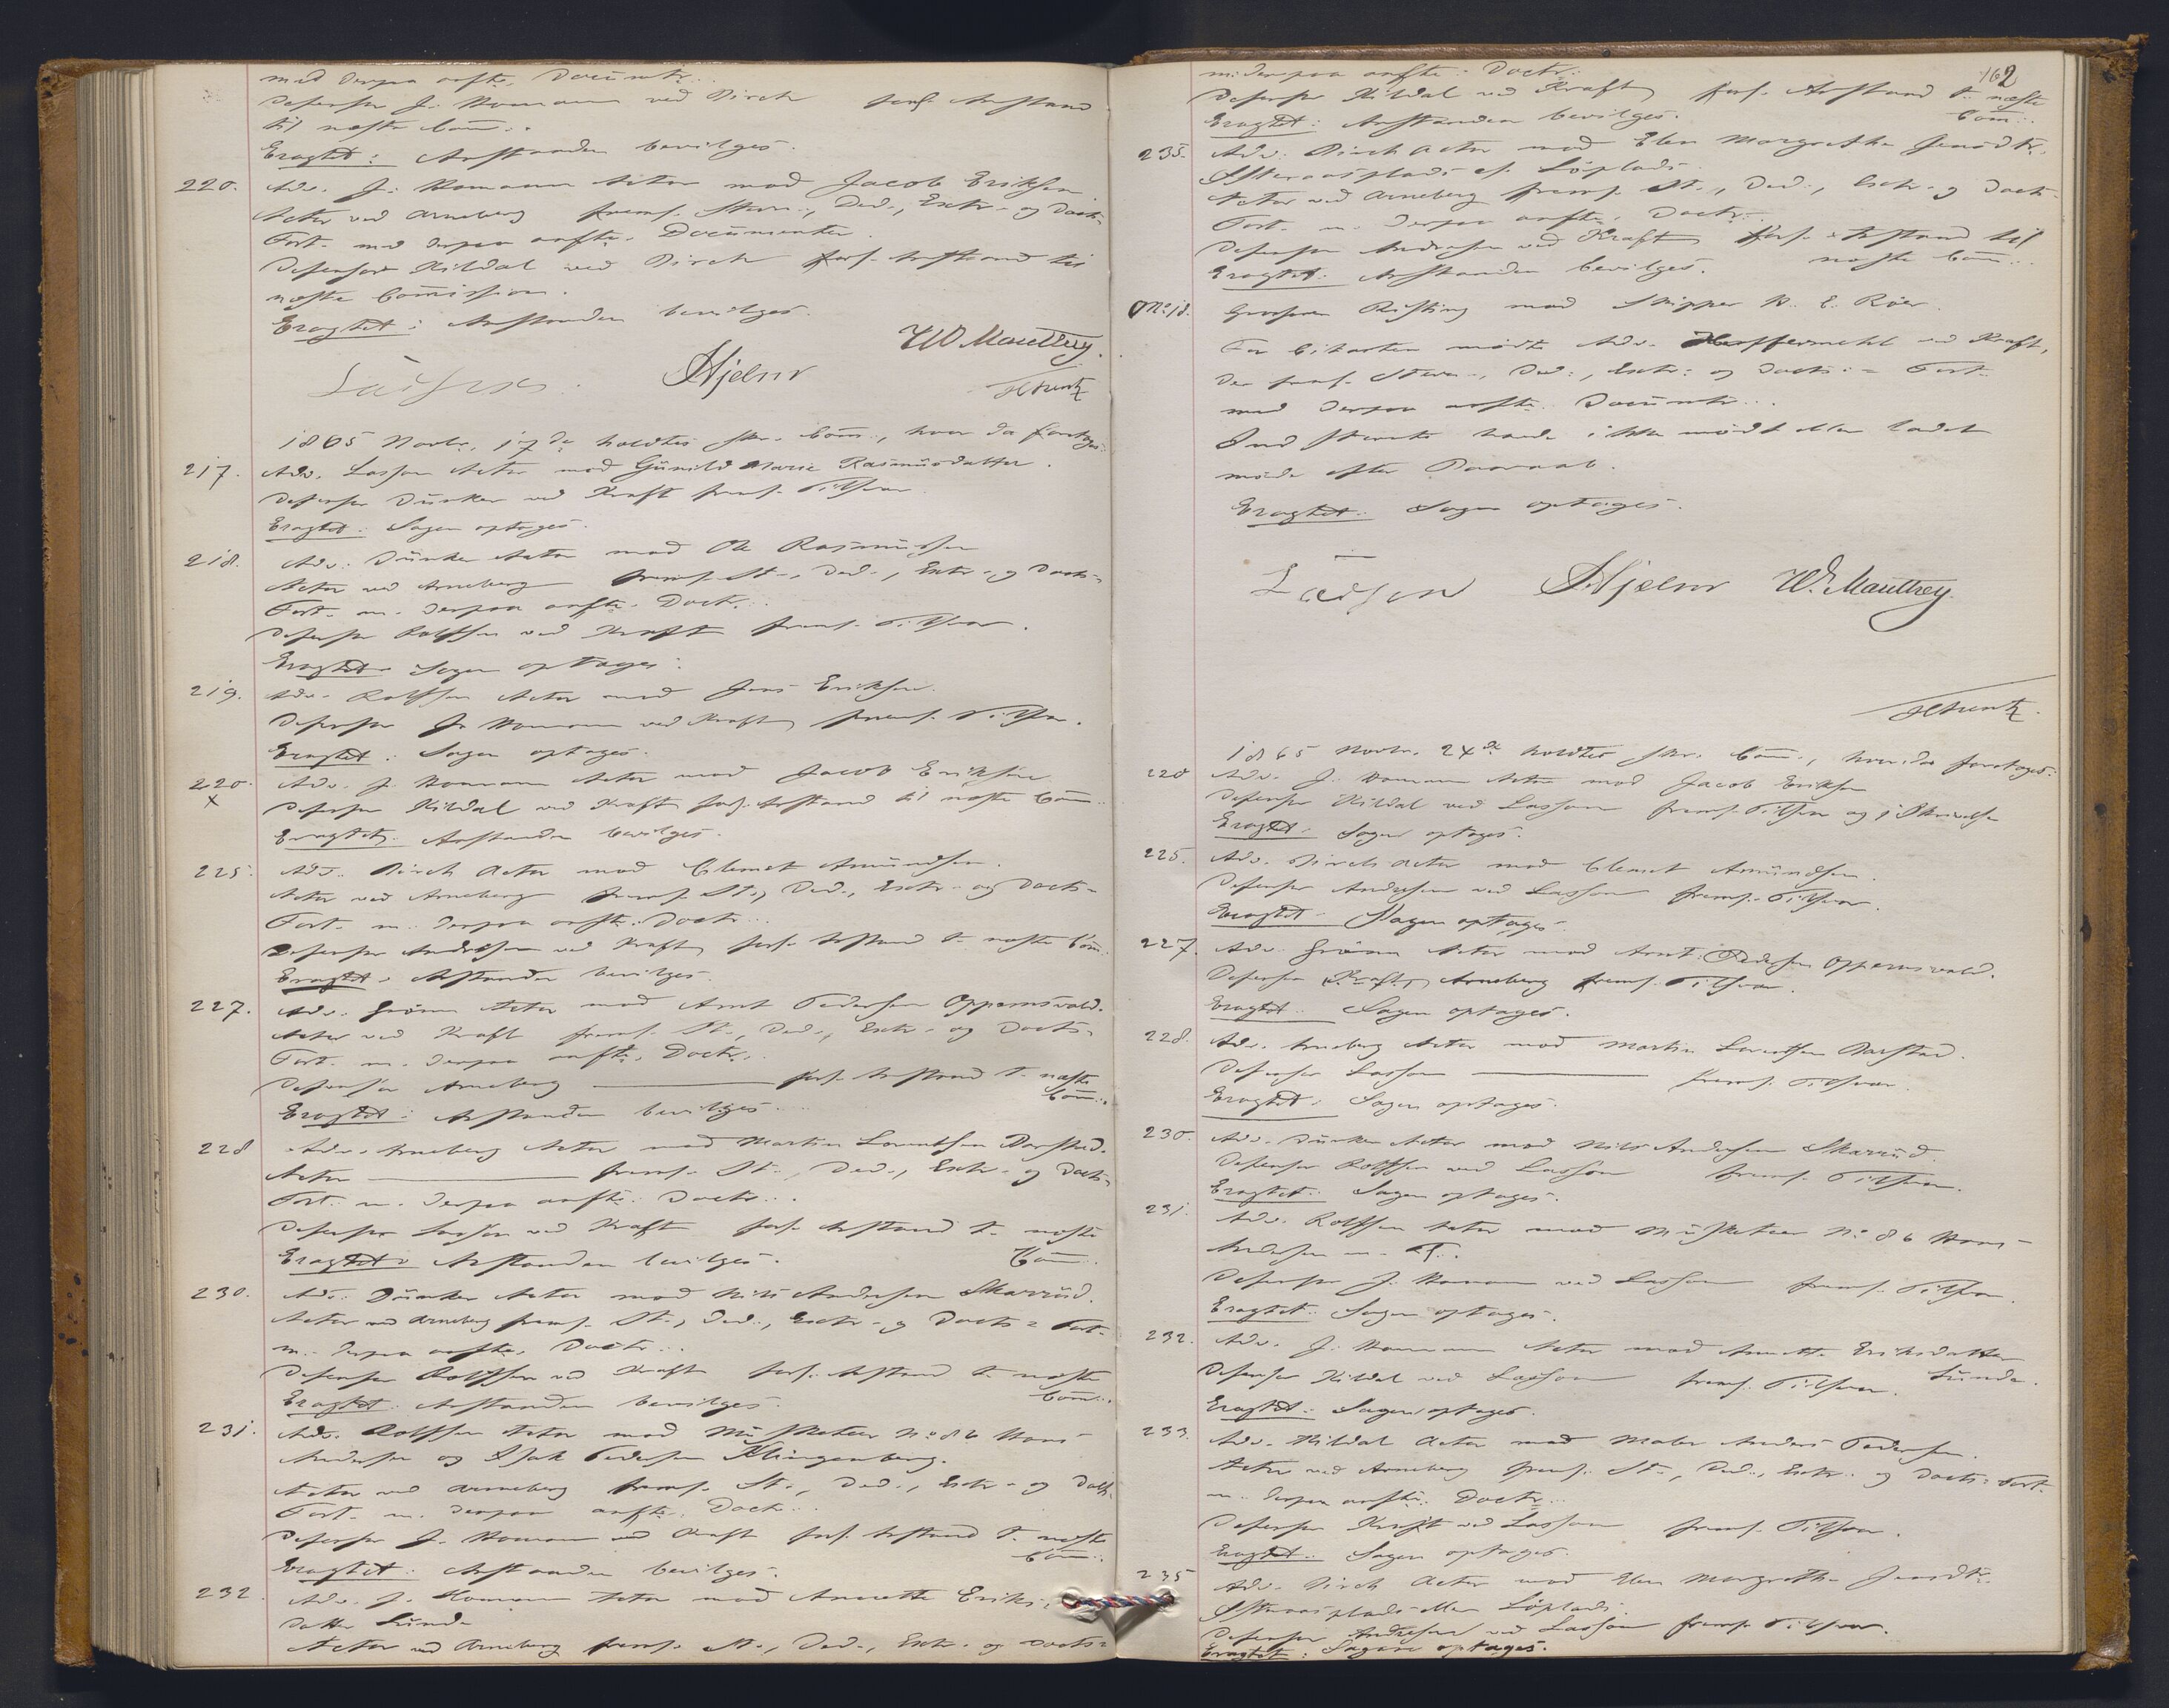 med derpaa anførte Documtr..
Defensor J. Homann ved Birch forl. Anstand
til næste Com:.
Eragtet: Anstanden bevilges.
220. Adv. J. Homann Actor mod Jacob Eriksen
Actor ved Arneberg freml. Stevn., Ded., Extr. og Docts=
Fort. med derpaa anfte. Documenter.
Defensor Kildal ved Birch forl. Anstand til
næste Commission.
Eragtet: Anstanden bevilges.
Lassen. Hjelm W. Manthey.
1865 Novbr. 17de holdtes skr. Com:, hvor da foretoges:
217. Adv. Lasson Actor mod Gunild Marie Rasmusdatter.
Defensor Dunker ved Kraft freml. Tilsvar.
Eragtet: Sagen optages.
218. Adv. Dunker Actor mod Ole Rasmussen
Actor ved Arneberg freml. St., Ded., Extr. og Docts=
Fort. m. derpaa anfte. Doctr..
Defensor Rolfsen ved Kraft freml. Tilsvar.
Eragtet: Sagen optages.
219. Adv. Rolfsen Actor mod Jens Eriksen.
Defensor J. Homann ved Kraft freml. Tilsvar.
Eragtet: Sagen optages.
220. x Adv. J. Homann Actor mod Jacob Eriksen
Defensor Kildal ved Kraft forl. Anstand til næste Com:.
Eragtet: Anstanden bevilges.
225. Adv. Birch Actor mod Clemet Amundsen.
Actor ved Arneberg freml. St., Ded., Extr. og Docts=
Fort. m. derpaa anfte. Doctr..
Defensor Andresen ved Kraft forl. Anstand t. næste Com:.
Eragtet: Anstanden bevilges.
227. Adv. Grönn Actor mod Arnt Pedersen Oppemsvald.
Actor ved Kraft freml. St., Ded., Extr. og Docts=
Fort. m. derpaa anfte. Doctr..
Defensor Arneberg ——— forl. Anstand t. næste
Com:.
Eragtet: Anstanden bevilges.
228 Adv. Arneberg Actor mod Martin Lorentsen Darstad.
Actor ——— freml. St., Ded., Extr. og Docts=
Fort. m. derpaa anfte. Doctr..
Defensor Lasson ved Kraft forl. Anstand t. næste
Com:.
Eragtet: Anstanden bevilges.
230. Adv. Dunker Actor mod Nils Andersen Skarrud.
Actor ved Arneberg freml. St., Ded., Extr. og Docts= Fort.
m. derpaa anfte. Doctr..
Defensor Rolfsen ved Kraft forl. Anstand t. næste
Com:.
Eragtet: Anstanden bevilges.
231. Adv. Rolfsen Actor mod Musketeer No 86 Hans
Andersen og Isak Pedersen Klingenberg.
Actor ved Arneberg freml. St., Ded., Extr. og Docts=
Fort. m. derpaa anfte. Doctr..
Defensor J. Homann ved Kraft forl. Anstand t. næste
Com:.
Eragtet: Anstanden bevilges.
232. Adv. J. Homann Actor mod Annette Eriks=
datter Lunde
Actor ved Arneberg freml. St., Ded., Extr. og Docts=
162
m. derpaa anfte. Doctr.
Defensor Kildal ved Kraft forl. Anstand t. næste
Com:.
Eragtet: Anstanden bevilges.
235. Adv. Birch Actor mod Elen Margrethe Jensdtr.
Actor ved Arneberg freml. St., Ded., Extr. og Docts=
Fort. m. derpaa anfte. Doctr..
Defensor Andresen ved Kraft forl. Anstand til
næste Com:.
Eragtet: Anstanden bevilges.
No 18. Grosserer Risting mod Skipper
For Citanten mødte Adv. Heffermehl ved Kraft,
der freml. Stevn., Ded., Extr. og Docts= Fort.
med derpaa anfte. Documtr..
Indstevnte havde ikke mødt eller ladet
møde efter Paaraab.
Eragtet: Sagen optages.
Lassen Hjelm W. Manthey.
1865 Novbr. 24de holdtes skr. Com:, hvor da foretoges:
220 Adv. J. Homann Actor mod Jacob Eriksen
Defensor Kildal ved Lasson freml. Tilsvar og 1 Skrivelse
Eragtet: Sagen optages.
225. Adv. Birch Actor mod Clemet Amundsen.
Defensor Andresen ved Lasson freml. Tilsvar.
Eragtet: Sagen optages.
227. Adv. Grönn Actor mod Arnt Pedersen Oppemsvald.
Defensor Arneberg freml. Tilsvar.
Eragtet: Sagen optages.
228. Adv. Arneberg Actor mod Martin Lorentsen Darstad.
Defensor Lasson ——— freml. Tilsvar.
Eragtet: Sagen optages.
230. Adv. Dunker Actor mod Nils Andersen Skarrud.
Defensor Rolfsen ved Lasson freml. Tilsvar.
Eragtet: Sagen optages.
231. Adv. Rolfsen Actor mod Musketeer No 86 Hans
Andersen m. Fl.
Defensor J. Homann ved Lasson freml. Tilsvar.
Eragtet: Sagen optages.
232. Adv. J. Homann Actor mod Annette Eriksdatter
Lunde.
Defensor Kildal ved Lasson freml. Tilsvar.
Eragtet: Sagen optages.
233. Adv. Kildal Actor mod Maler Anders Pedersen.
Actor ved Arneberg freml. St., Ded., Extr. og Docts= Fort.
m. derpaa anfte. Doctr..
Defensor Kraft ved Lasson freml. Tilsvar.
Eragtet: Sagen optages.
235 Adv. Birch Actor mod Elen Margrethe Jensdtr.
eller Löplads.
Defensor Andresen ved Lasson freml. Tilsvar.
Eragtet: Sagen optages.